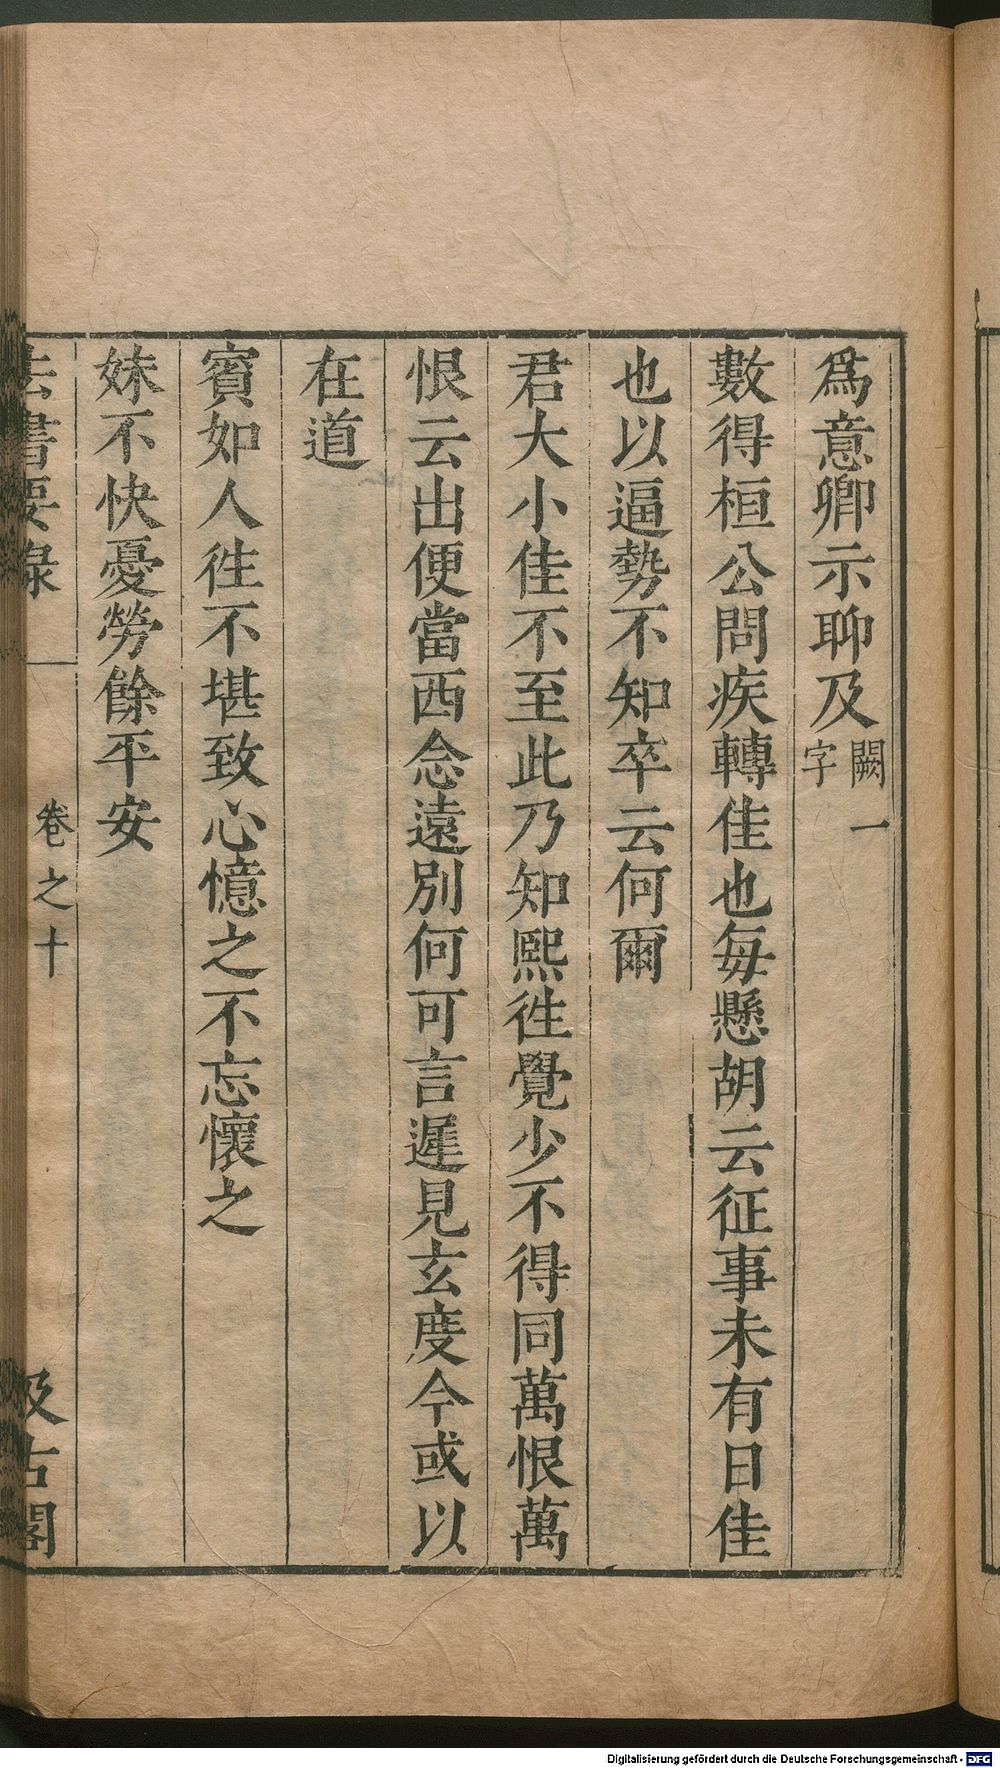 爲意卿示聊及闕一字
數得桓公問疾轉佳也每懸胡云征事未有日佳
也以逼勢不知卒云何爾
君大小佳不至此乃知熙徃覺少不得同萬恨萬
恨云出便當西念遠別何可言遲見玄度今或以
在道
賓如人徃不堪致心憶之不忘懷之
妹不快憂勞餘平安
法書要錄 卷之十 汲古閣
Digitalisierung gefördert durch die Deutsche Forschungsgemeinschaft - DFG